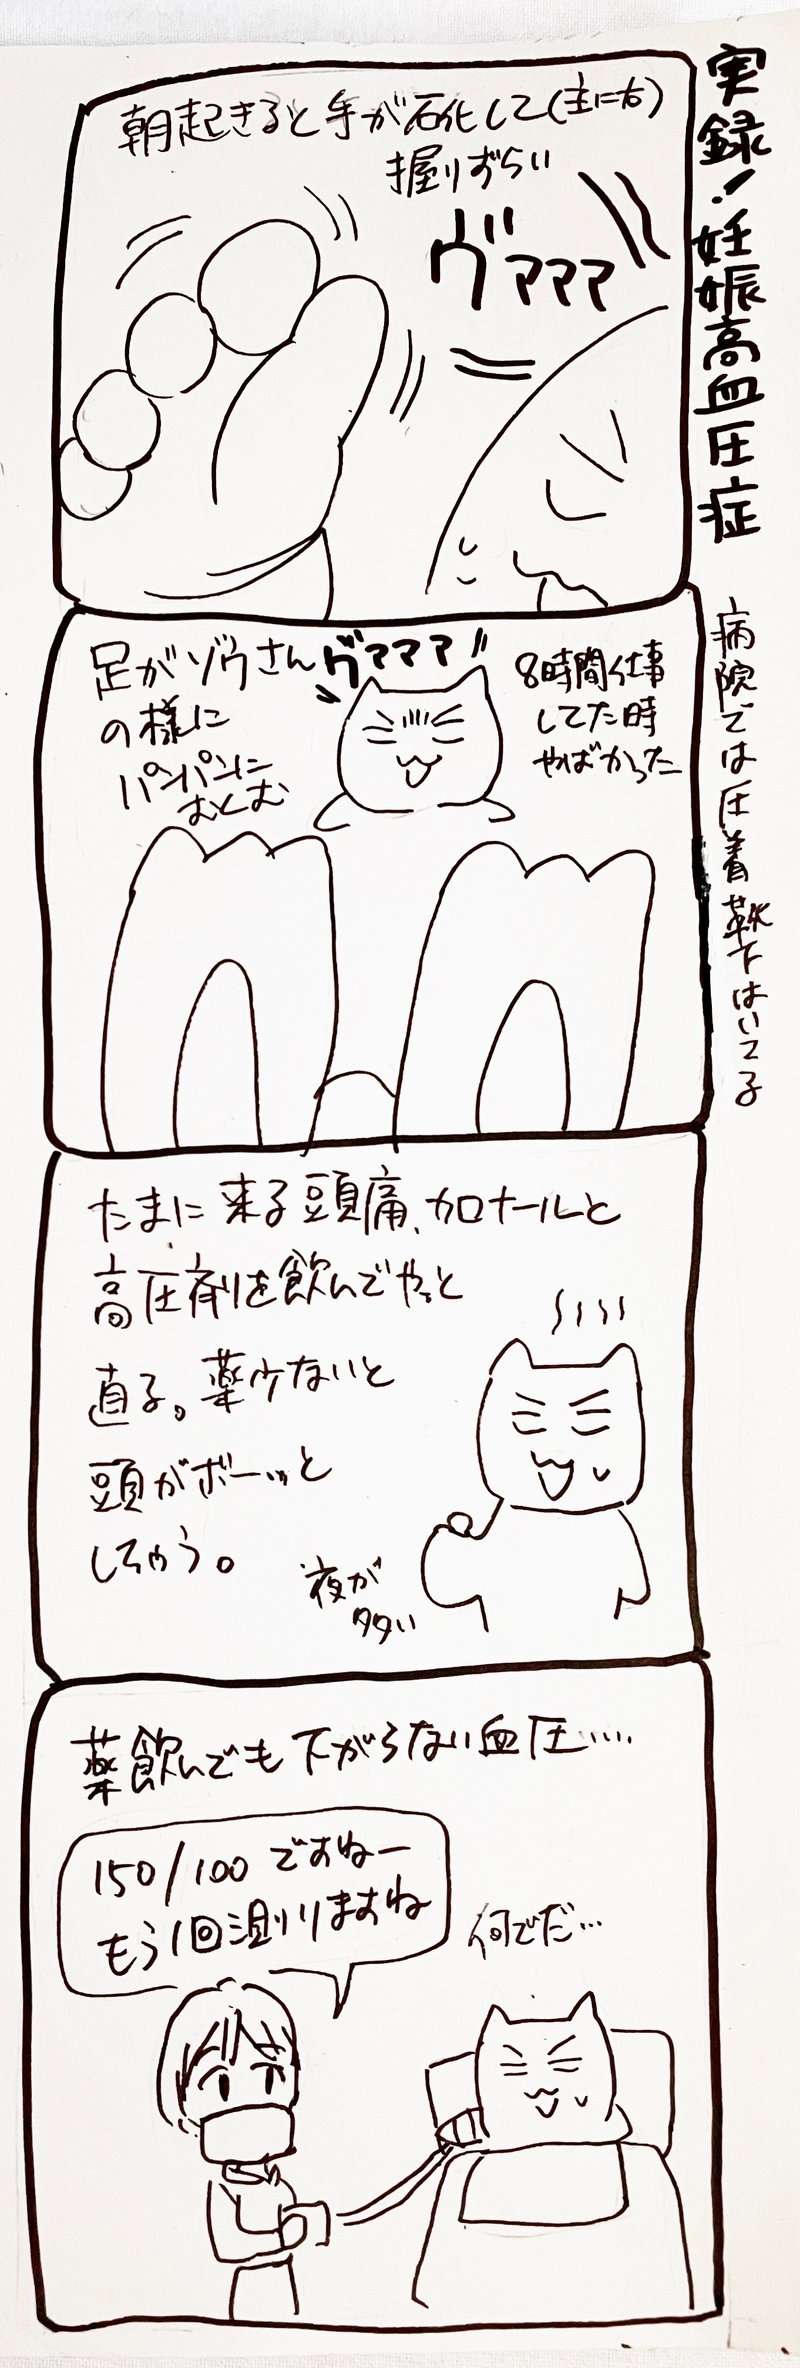 実録!妊娠高血圧症
朝起きると手が石化して(主に右)
握りずらい
ヴァママ
足がゾウさん
の様に
パンパンに
むくむ
ヴァママ
8時間仕事
してた時
やばかった
病院では圧着靴下はいてる
たまに来る頭痛、カロナールと
高圧剤を飲んでやっと
直る。薬少ないと
頭がボーッと
しちゃう。
夜が
多い
薬飲んでも下がらない血圧……
150/100ですねー
もう1回測りますね
何でだ…